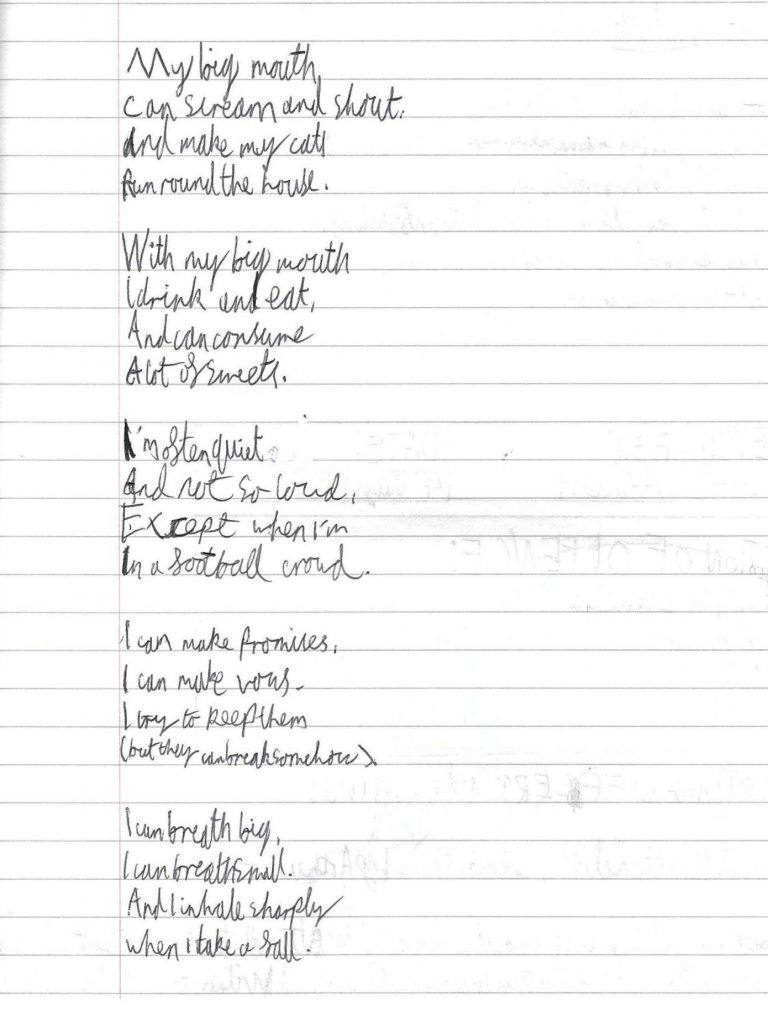 My big mouth,
can scream and shout.
And make my cats
Run round the house.
With my big mouth
I drink and eat,
And can consume
A lot of sweets.
I'm often quiet
And not so loud,
Except when I'm
In a football crowd.
I can make promises,
I can make vows-
I try to keep them
(but they can break somehow).
I can breath big,
I can breath small.
And I inhale sharply
when I take a fall.